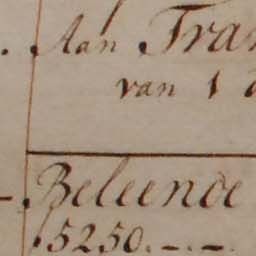 Aan Tran
van 1
Beleende
5250.-.-.